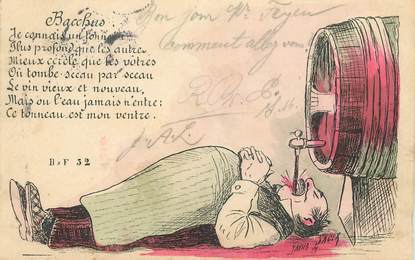 Bacchus
Je connais un tonneau
Plus profond que les autres
Mieux cerclé que les vôtres
Où tombe seau par seau
Le vin vieux et nouveau,
Mais où l'eau jamais n'entre:
Ce tonneau est mon ventre.
B x F 52
Bon jour Mr
comment allez vous